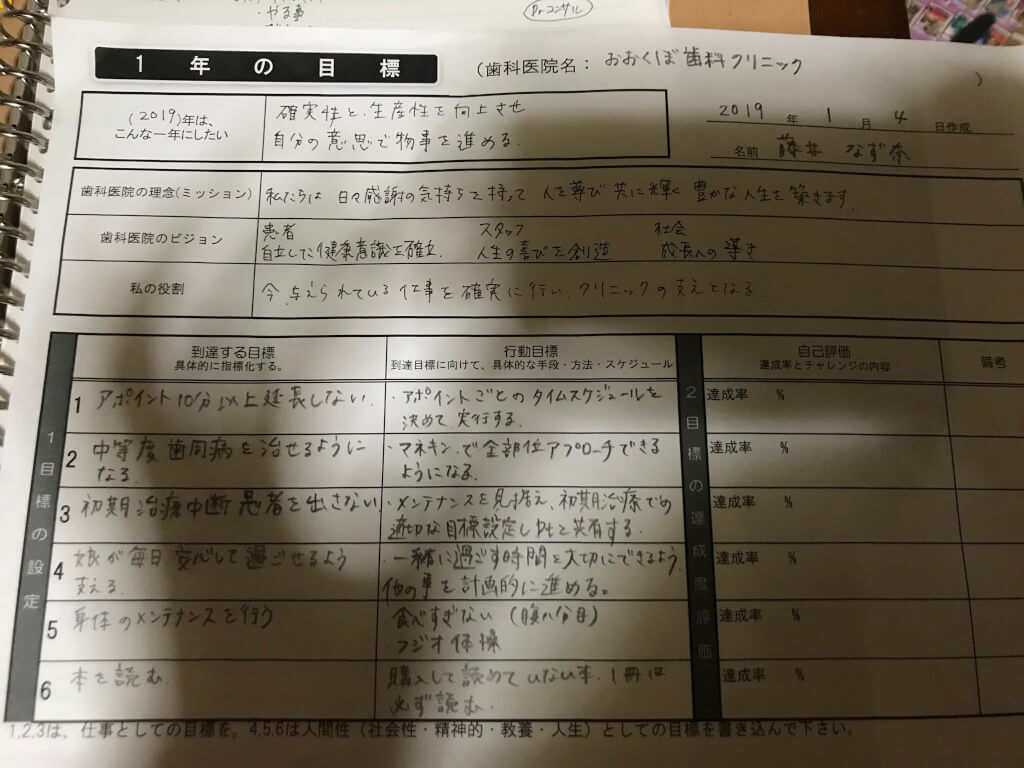 ・やる事
Prコンサル
1年の目標
(歯科医院名：おおくぼ歯科クリニック
)
(2019)年は、
こんな一年にしたい
確実性と、生産性を向上させ
自分の意思で物事を進める。
2019年1月4日作成
名前 藤井 なず奈
歯科医院の理念(ミッション)
私たちは 日々感謝の気持ちを持って 人を尊び 共に輝く 豊かな人生を築きます。
歯科医院のビジョン
患者 スタッフ 社会
自立した健康意識を確立 人生の喜びを創造 成長への導き
私の役割
今、与えられている仕事を確実に行い、クリニックの支えとなる。
1目標の設定
到達する目標
具体的に指標化する。
行動目標
到達目標に向けて、具体的な手段・方法・スケジュール
2目標の達成度評価
自己評価
達成率とチャレンジの内容
備考
1 アポイント10分以上延長しない。
・アポイントごとのタイムスケジュールを
決めて実行する。
達成率 %
2 中等度歯周病を治せるように
なる。
・マネキンで全部位アプローチできる
ようになる。
達成率 %
3 初期治療中断患者を出さない
・メンテナンスを見据え、初期治療での
適切な目標設定しPtと共有する。
達成率 %
4 娘が毎日、安心して過ごせるよう
支える。
・一緒に過ごす時間を大切にできるよう、
他の事を計画的に進める。
達成率 %
5 身体のメンテナンスを行う
食べすぎない（腹八分目）
ラジオ体操
達成率 %
6 本を読む
購入して読めていない本、1冊は
必ず読む。
達成率 %
1,2,3は、仕事としての目標を。4,5,6は人間性（社会性・精神的・教養・人生）としての目標を書き込んで下さい。